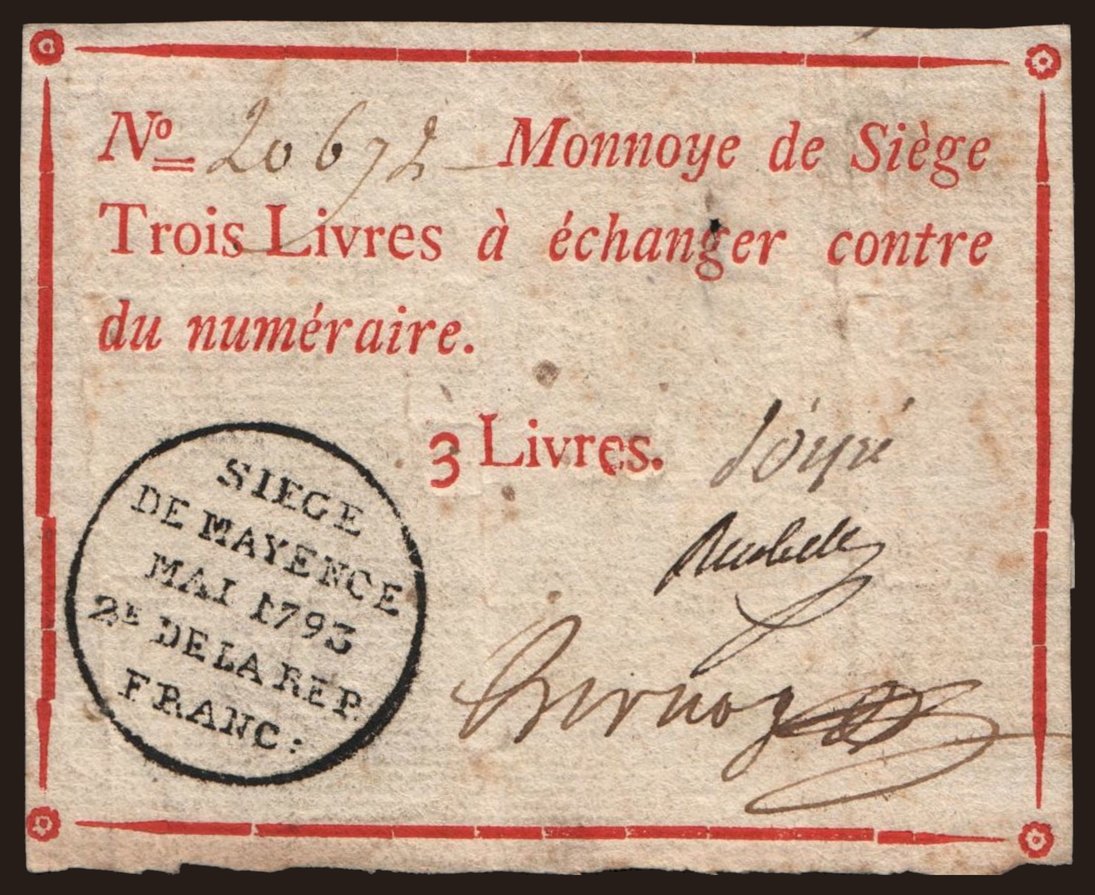 No 20672 Monnoye de Siège
Trois Livres à échanger contre
du numéraire.
3 Livres.
SIEGE
DE MAYENCE
MAI 1793
2E DE LA REP.
FRANC: